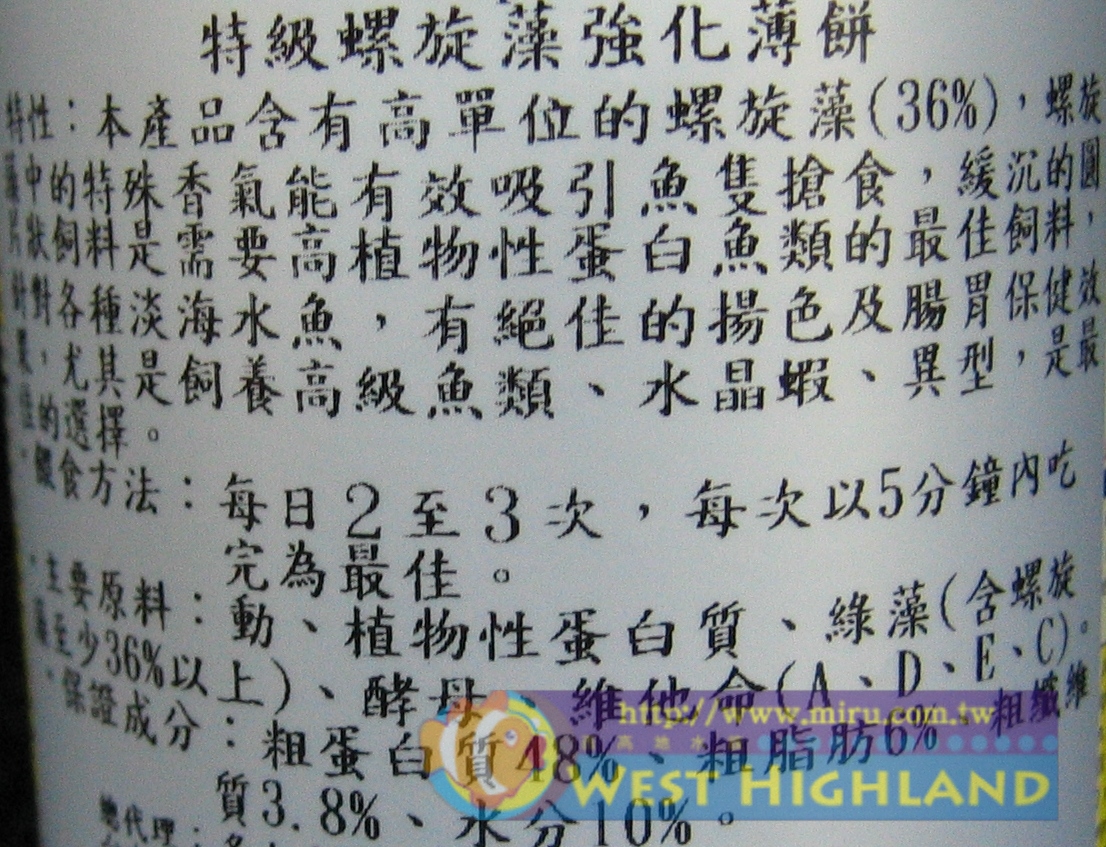 特級螺旋藻強化薄餅
特性：本產品含有高單位的螺旋藻(36%)，螺旋
藻中的特殊香氣能有效吸引魚隻搶食，緩沉的圓
片狀飼料是需要高植物性蛋白魚類的最佳飼料，
針對各種淡海水魚，有絕佳的揚色及腸胃保健效
果，尤其是飼養高級魚類、水晶蝦、異型，是最
佳的選擇。
·餵食方法：每日2至3次，每次以5分鐘內吃
完為最佳。
·主要原料：動、植物性蛋白質、綠藻(含螺旋
藻至少36%以上)、酵母、維他命(A、D、E、C)。
·保證成分：粗蛋白質48%、粗脂肪6%、粗纖維
質3.8%、水分10%。
總代理：
http://www.miru.com.tw
高地水
WEST HIGHLAND